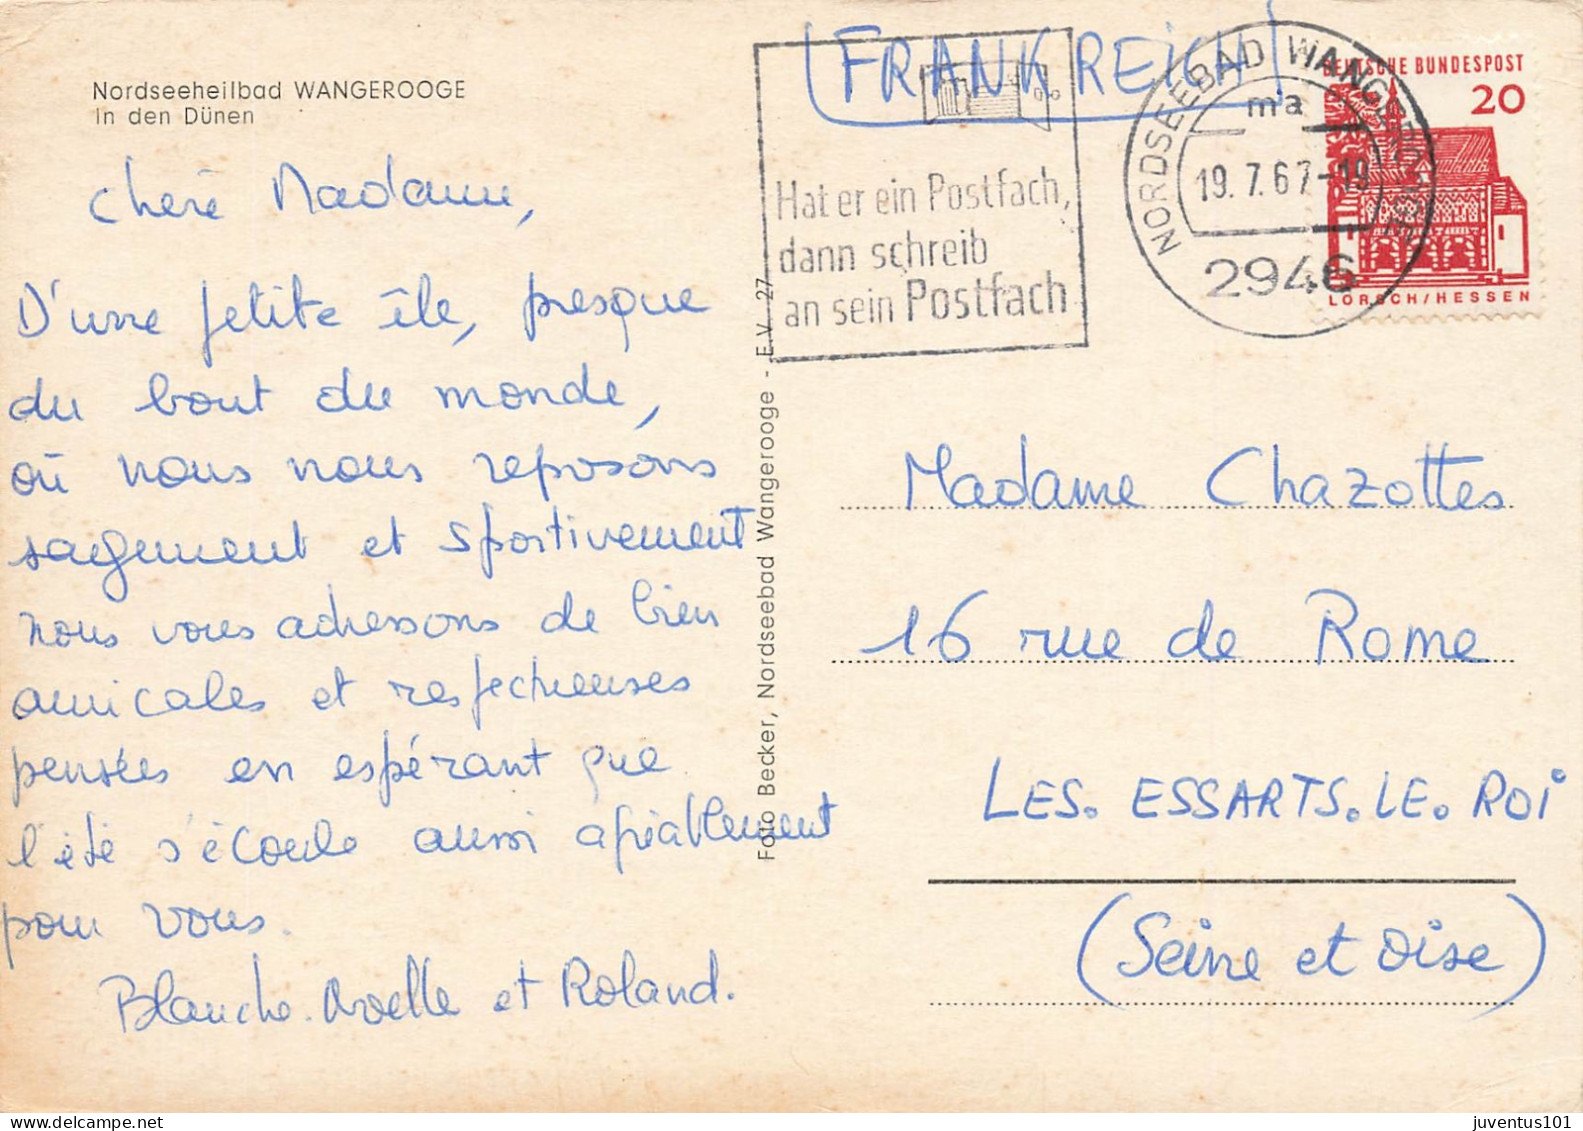 Nordseeheilbad WANGEROOGE
In den Dünen
Chère Madame,
D'une petite île, presque
du bout du monde,
où nous nous reposons
sagement et sportivement
nous vous adressons de bien
amicales et respectueuses
pensées en espérant que
l'été s'écoule aussi agréablement
pour vous.
Blanche. et Roland.
Foto Becker, Nordseebad Wangerooge - E.V. 27
FRANKREICH
Hat er ein Postfach,
dann schreib
an sein Postfach
NORDSEEBAD WANGEROOGE
ma
19.7.67-19
2946
DEUTSCHE BUNDESPOST
20
LORSCH/HESSEN
Madame Chazottes
16 rue de Rome
LES. ESSARTS. LE. ROI
(Seine et Oise)
juventus101